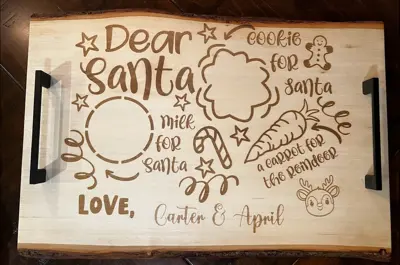 Dear
Santa
cookie
for
Santa
milk
for
Santa
a carrot for
the reindeer
Love,
Carter & April